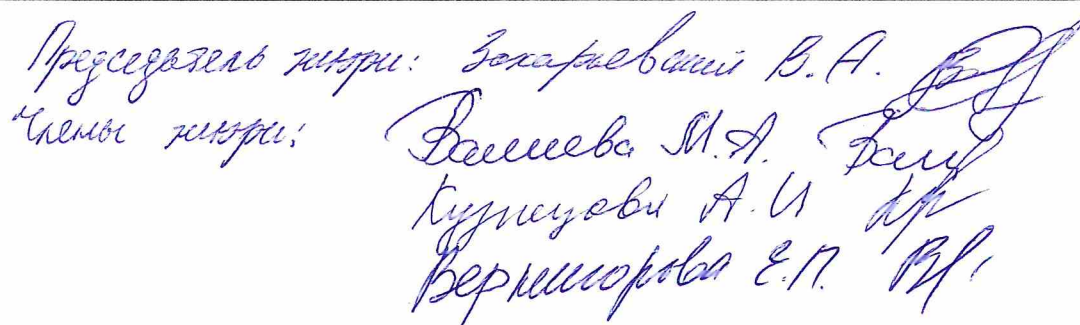 Председатель жюри: Захарьевский В.А.
Члены жюри: Валиева М.А.
Кузнецова А.И
Вернигорова Е.П.